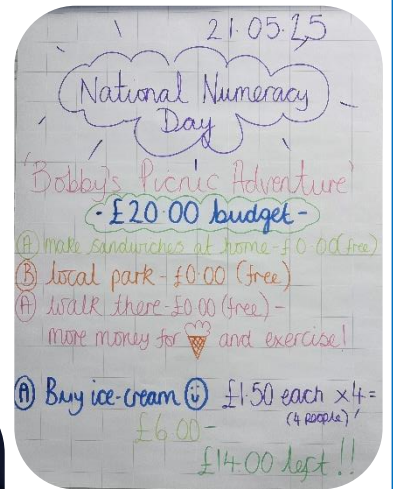 21.05.25
National Numeracy
Day
'Bobby's Picnic Adventure'
- £20.00 budget -
(A) make sandwiches at home - £0.00 (free)
(B) local park - £0.00 (free)
(A) walk there - £0.00 (free) -
more money for and exercise!
(A) Buy ice-cream £1.50 each x4 =
(4 people)
£6.00 -
£14.00 left!!